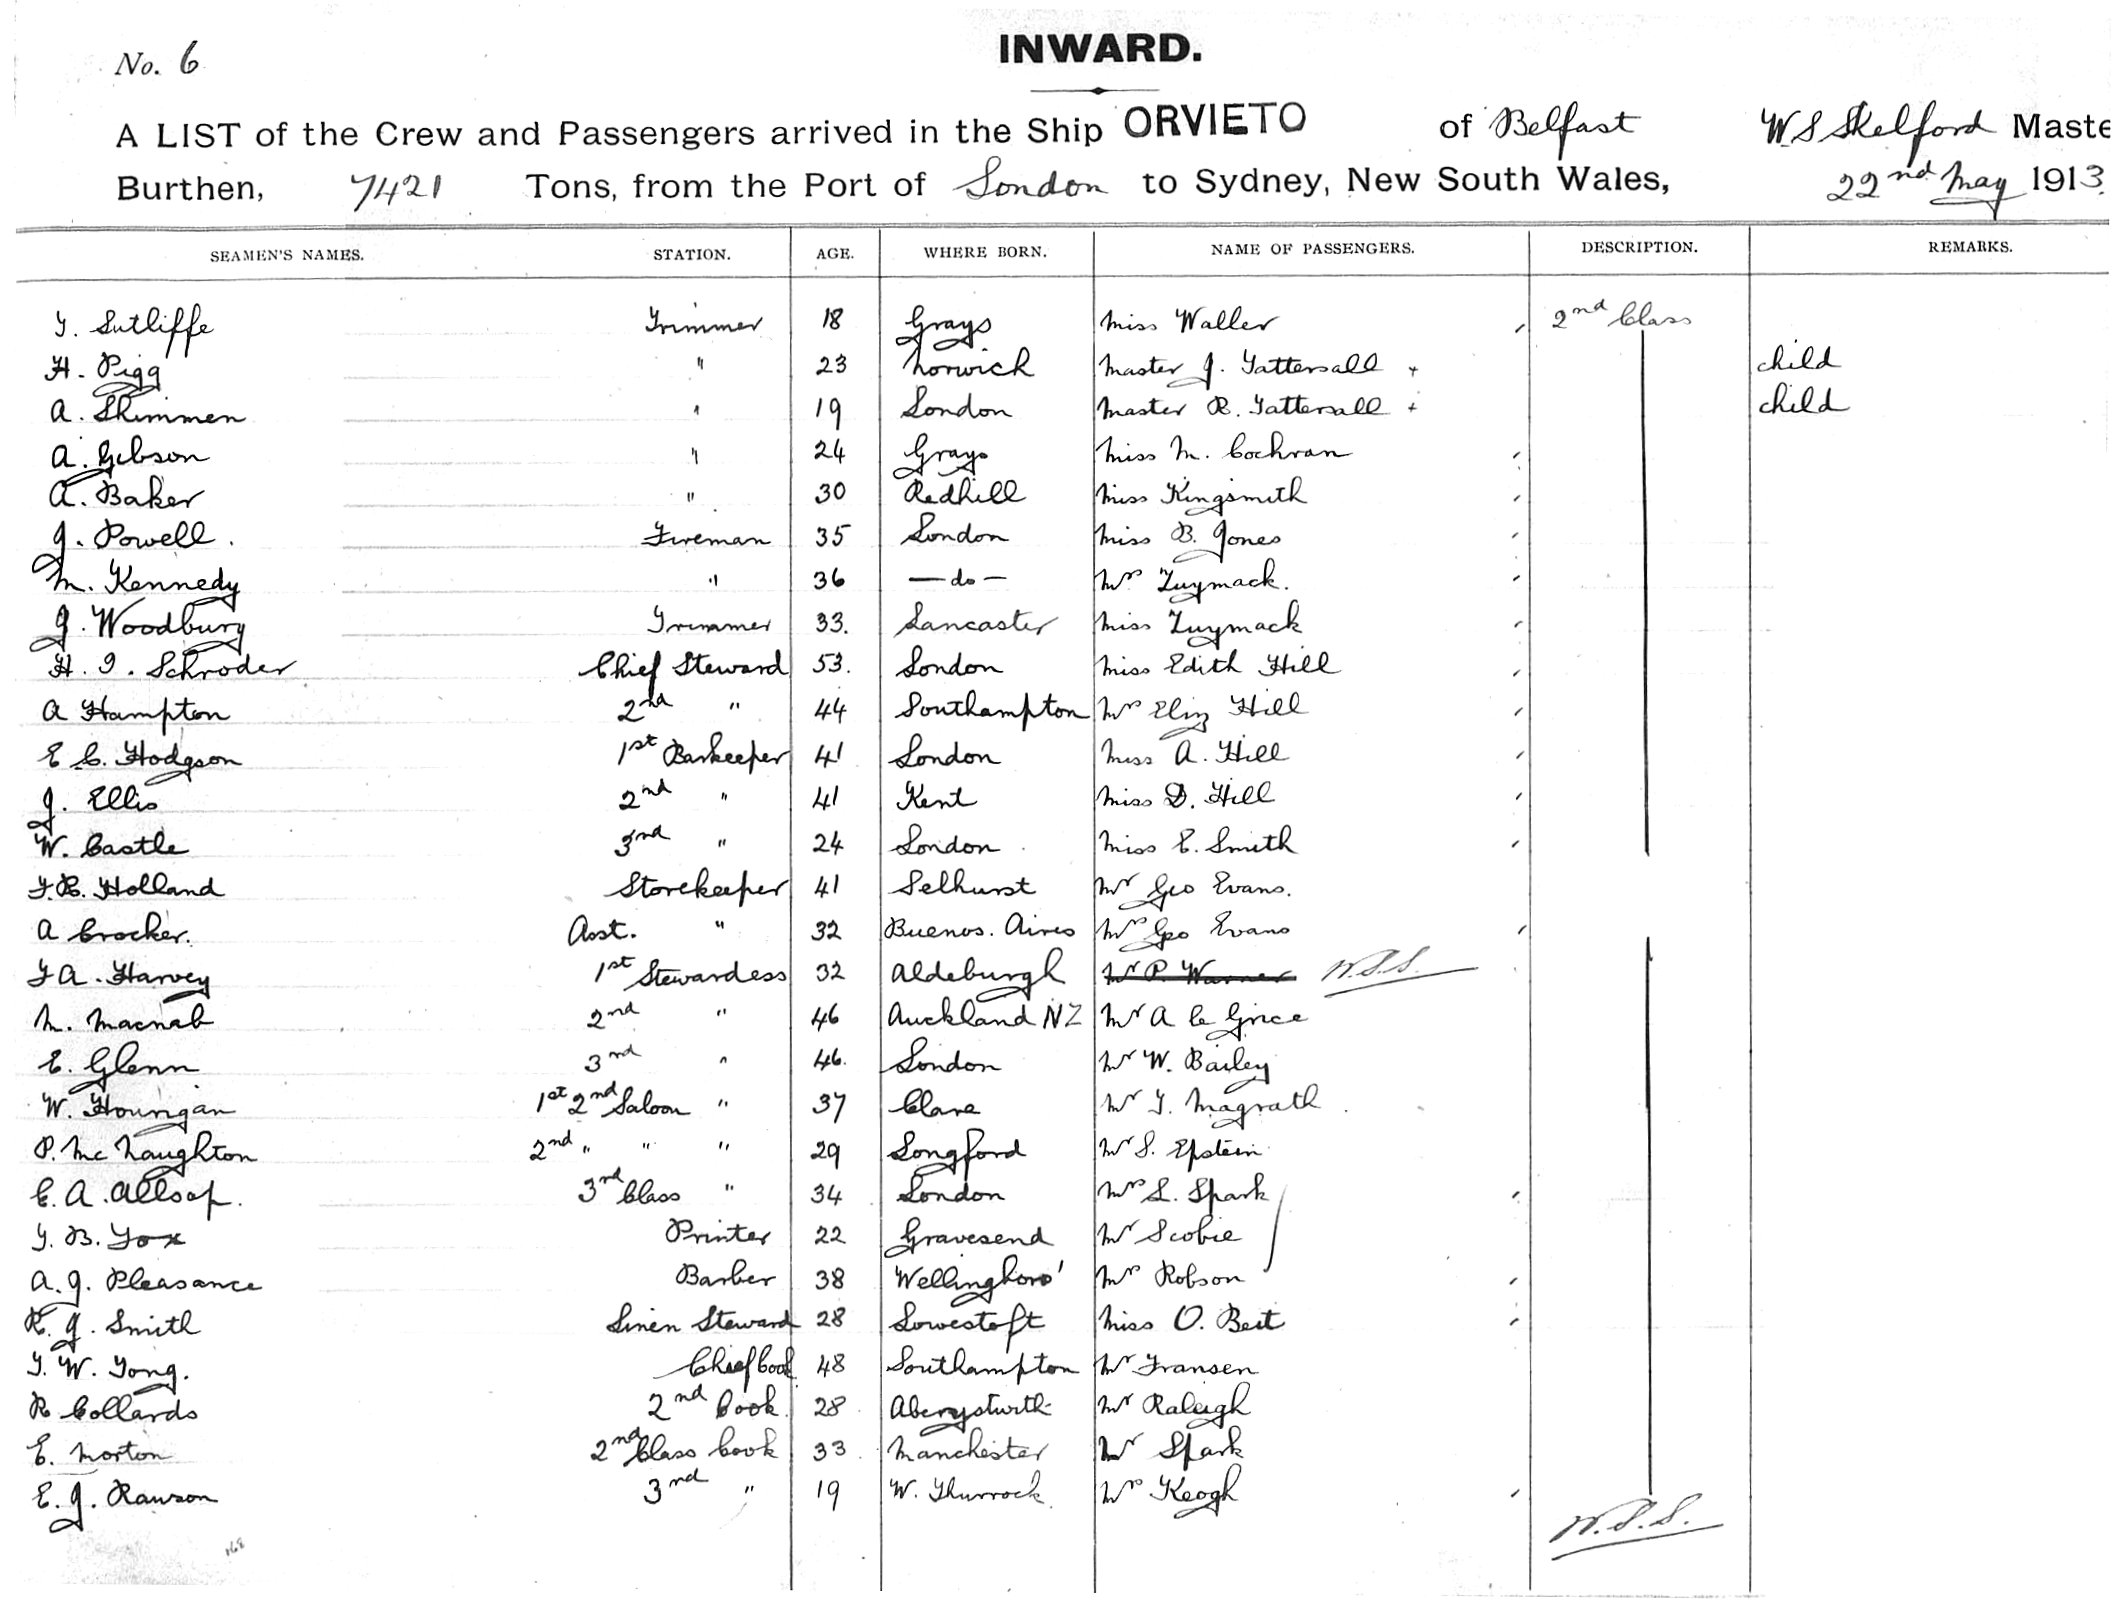 No. 6
INWARD.
A LIST of the Crew and Passengers arrived in the Ship ORVIETO of Belfast W.S Skelford Maste
Burthen, 7421 Tons, from the Port of London to Sydney, New South Wales, 22nd May 1913.
SEAMEN'S NAMES. STATION. AGE. WHERE BORN. NAME OF PASSENGERS. DESCRIPTION. REMARKS.
T. Sutliffe Trimmer 18 Grays Miss Waller 2nd Class
H. Pigg " 23 Norwick Master J. Tattersall + child
A. Skimmen " 19 London Master R. Tattersall + child
A. Gibson " 24 Grays Miss M. Cochran
A. Baker " 30 Redhill Miss Kingsmith
J. Powell. Fireman 35 London Miss B. Jones
M. Kennedy " 36 —do— Mrs Zuymack.
J. Woodbury Trimmer 33. Lancaster Miss Zuymack
H. I. Schroder Chief Steward 53. London Miss Edith Hill
A Hampton 2nd " 44 Southampton Mrs Eliz Hill
E C. Hodgson 1st Barkeeper 41 London Miss A. Hill
J. Ellis 2nd " 41 Kent Miss D. Hill
W. Castle 3rd " 24 London Miss E. Smith
F.R. Holland Storekeeper 41 Selhurst Mr Geo Evans.
A Crocker. Asst. " 32 Buenos. Aires Mrs Geo Evans
F A. Harvey 1st Stewardess 32 Aldeburgh Mr P. Warner W.S.S.
M. Macnab 2nd " 46 Auckland NZ Mr A le Grice
E. Glenn 3rd " 46. London Mr W. Bailey
W. Hourigan 1st 2nd Saloon " 37 Clare Mr T. Magrath
P. McNaughton 2nd " " " 29 Longford Mr S. Epstein
E. A. Allsop. 3rd Class " 34 London Mrs L. Spark
T. B. Fox Printer 22 Gravesend Mr Scobie
A. J. Pleasance Barber 38 Wellingboro' Mrs Robson
R. J. Smith Linen Steward 28 Lowestoft Miss O. Beit
T. W. Tong. Chief Cook 48 Southampton Mr Fransen
R Collards 2nd Cook 28 Aberystwith Mr Raleigh
E. Morton 2nd Class Cook 33 Manchester Mr Spark
E. J. Rawson 3rd " 19 W. Thurrock Mrs Keogh
W.S.S.